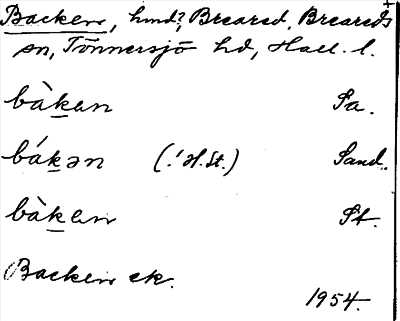 Backen, hmd?, Breared, Breareds
sn, Tönnersjö hd, Hall. l.
bàkan Sa.
bákən (! H. St.) Sand.
bàkan St.
Backen ek.
1954.